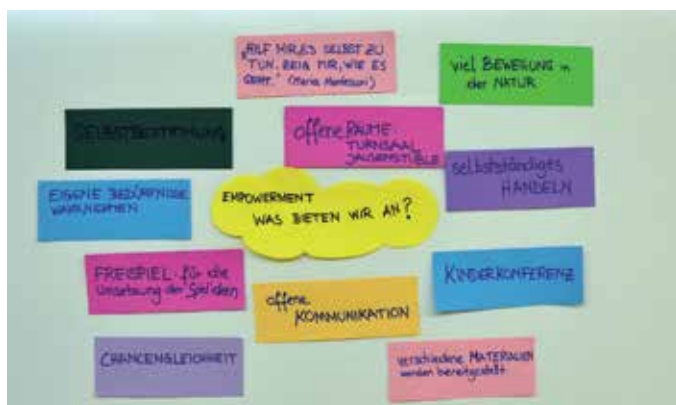 „HILF MIR, ES SELBST ZU
TUN. ZEIG MIR, WIE ES
GEHT." (Maria Montessori)
viel BEWEGUNG in
der NATUR
SELBSTBESTIMMUNG
offene RÄUME
TURNSAAL
JAUSENSTÜBLE
selbstständiges
HANDELN
EIGENE BEDÜRFNISSE
WAHRNEHMEN
EMPOWERMENT
WAS BIETEN WIR AN?
FREISPIEL für die
Umsetzung der Spielideen
offene
KOMMUNIKATION
KINDERKONFERENZ
CHANCENGLEICHHEIT
verschiedene MATERIALIEN
werden bereitgestellt